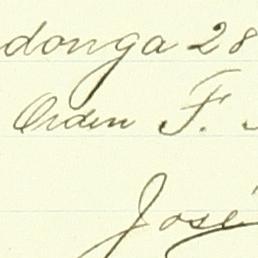 donga 28
Orden F.
José